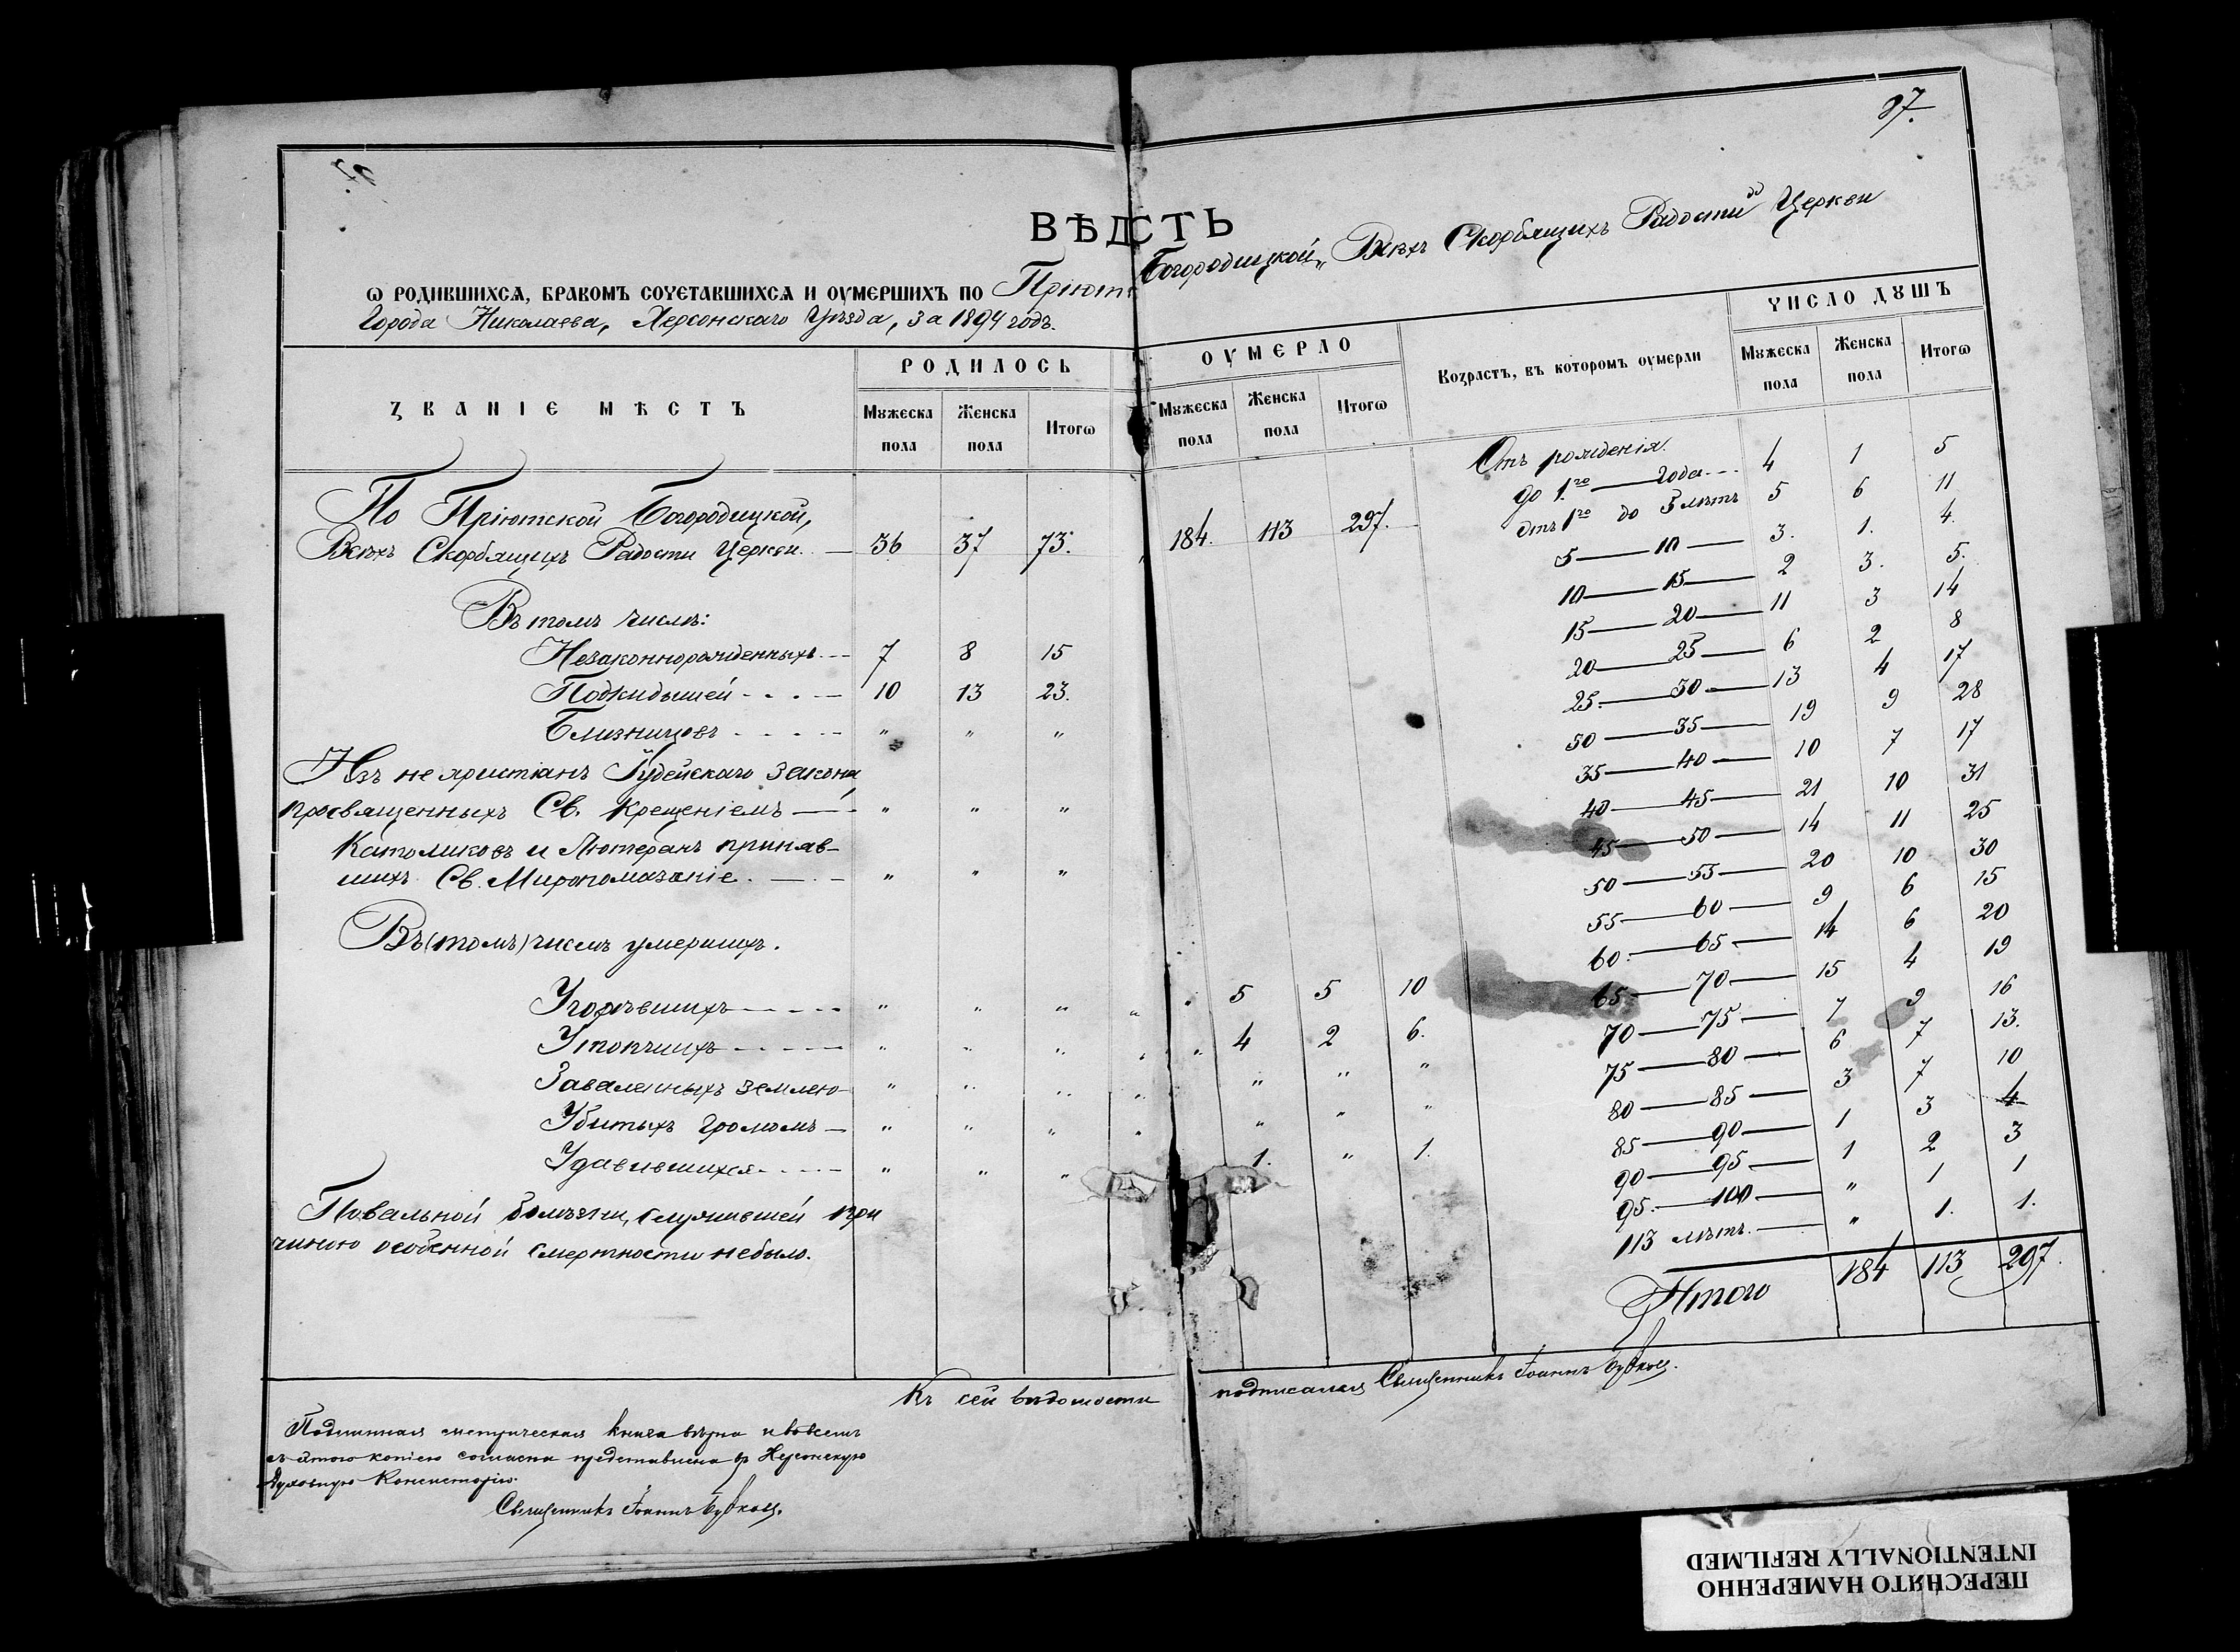 87.
ВѢДСТЬ
Ѡ РОДИВШИХСѦ, БРАКОМЪ СОЧЕТАВШИХСѦ И ОУМЕРШИХЪ ПО Пріютс Богородицкой „Всѣхъ Скорбящихъ Радости“ Церкви
Города Николаева, Херсонскаго Уѣзда, за 1894 годъ.
ЗВАНІЕ МѢСТЪ
РОДИЛОСЬ
Мꙋжеска пола
Женска пола
Итогѡ
ОУМЕРЛО
Мꙋжеска пола
Женска пола
Итогѡ
Возрастъ, въ которомъ оумерли
ЧИСЛО ДꙊШЪ
Мꙋжеска пола
Женска пола
Итогѡ
По Пріютской Богородицкой,
Всѣхъ Скорбящихъ Радости Церкви. — 36 37 73. " 184. 113 297.
Въ томъ числѣ:
Незаконнорожденныхъ. — 7 8 15
Подкидышей - - - — 10 13 23.
Близнецовъ - - - - - " " "
Изъ не христіанъ Іудейскаго закона
просвященныхъ Св. Крещеніемъ — " " "
Католиковъ и Лютеранъ приняв-
шихъ Св. Миропомазаніе. — - — " " "
Въ (томъ) числѣ умершихъ.
Угорѣвшихъ - - - - " " " " " 5 5 10
Утопшихъ - - - - - " " " " " 4 2 6.
Заваленныхъ землею - " " " " " " "
Убитыхъ громомъ — " " " " " " "
Удавившихся - - - - " " " 1. " 1.
Повальной болѣзни, служившей при
чиною особенной смертности небыло.
Отъ рожденія.
до 1.го — года - - - 4 1 5
отъ 1го до 5 лѣтъ 5 6 11
5 — 10 — 3. 1. 4.
10 — 15 — 2 3. 5.
15 — 20 — 11 3 14
20 — 25 — 6 2 8
25. — 30 — 13 4 17
30 — 35 — 19 9 28
35 — 40 — 10 7 17
40 — 45 — 21 10 31
45 — 50 — 14 11 25
50 — 55 — 20 10 30
55 — 60 — 9 6 15
60. — 65 — 14 6 20
65 — 70 — 15 4 19
70 — 75 — 7 9 16
75 — 80 — 6 7 13.
80 — 85 — 3 7 10
85 — 90 — 1 3 4
90 — 95 — 1 2 3
95. — 100 — " 1 1
113 лѣтъ. — " 1. 1.
Итого 184 113 297.
Къ сей вѣдомости подписался Священникъ Іоаннъ
Подлинная метрическая книга вѣрна и во всемъ
съ этою копіею согласна представлена въ Херсонскую
Духовную Консисторію.
Священникъ Іоаннъ
ПЕРЕСНЯТО НАМЕРЕННО
INTENTIONALLY REFILMED